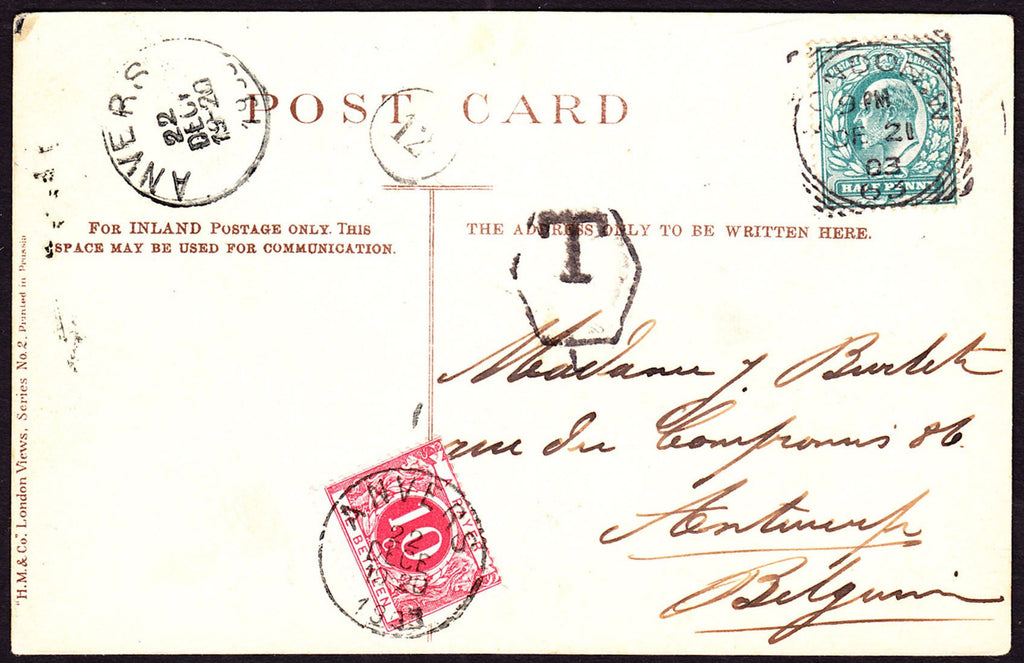 POST CARD
ANVERS
22
DEC
19-20
12
LONDON. W
9 PM
DE 21
03
HALFPENNY
FOR INLAND POSTAGE ONLY. THIS
SPACE MAY BE USED FOR COMMUNICATION.
THE ADDRESS ONLY TO BE WRITTEN HERE.
T
Madame J. Burlet
rue du Compromis 86.
Antwerp
Belgium
ANVERS
22
DECE
20
TE BETALEN
10
"H.M.& Co". London Views, Series No. 2. Printed in Prussia